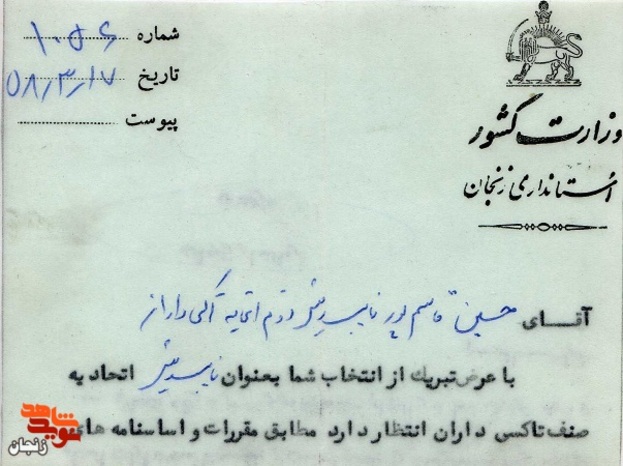 شماره ۱۰۵۶
تاریخ ۵۸/۳/۱۷
پیوست
وزارت کشور
استانداری زنجان
آقای حسین قاسم پور نایب رئیس دوم اتحادیه تاکسی داران
با عرض تبریك از انتخاب شما بعنوان نایب رئیس اتحادیه
صنف تاکسی داران انتظار دارد مطابق مقررات و اساسنامه های
نوید شاهد
زنجان